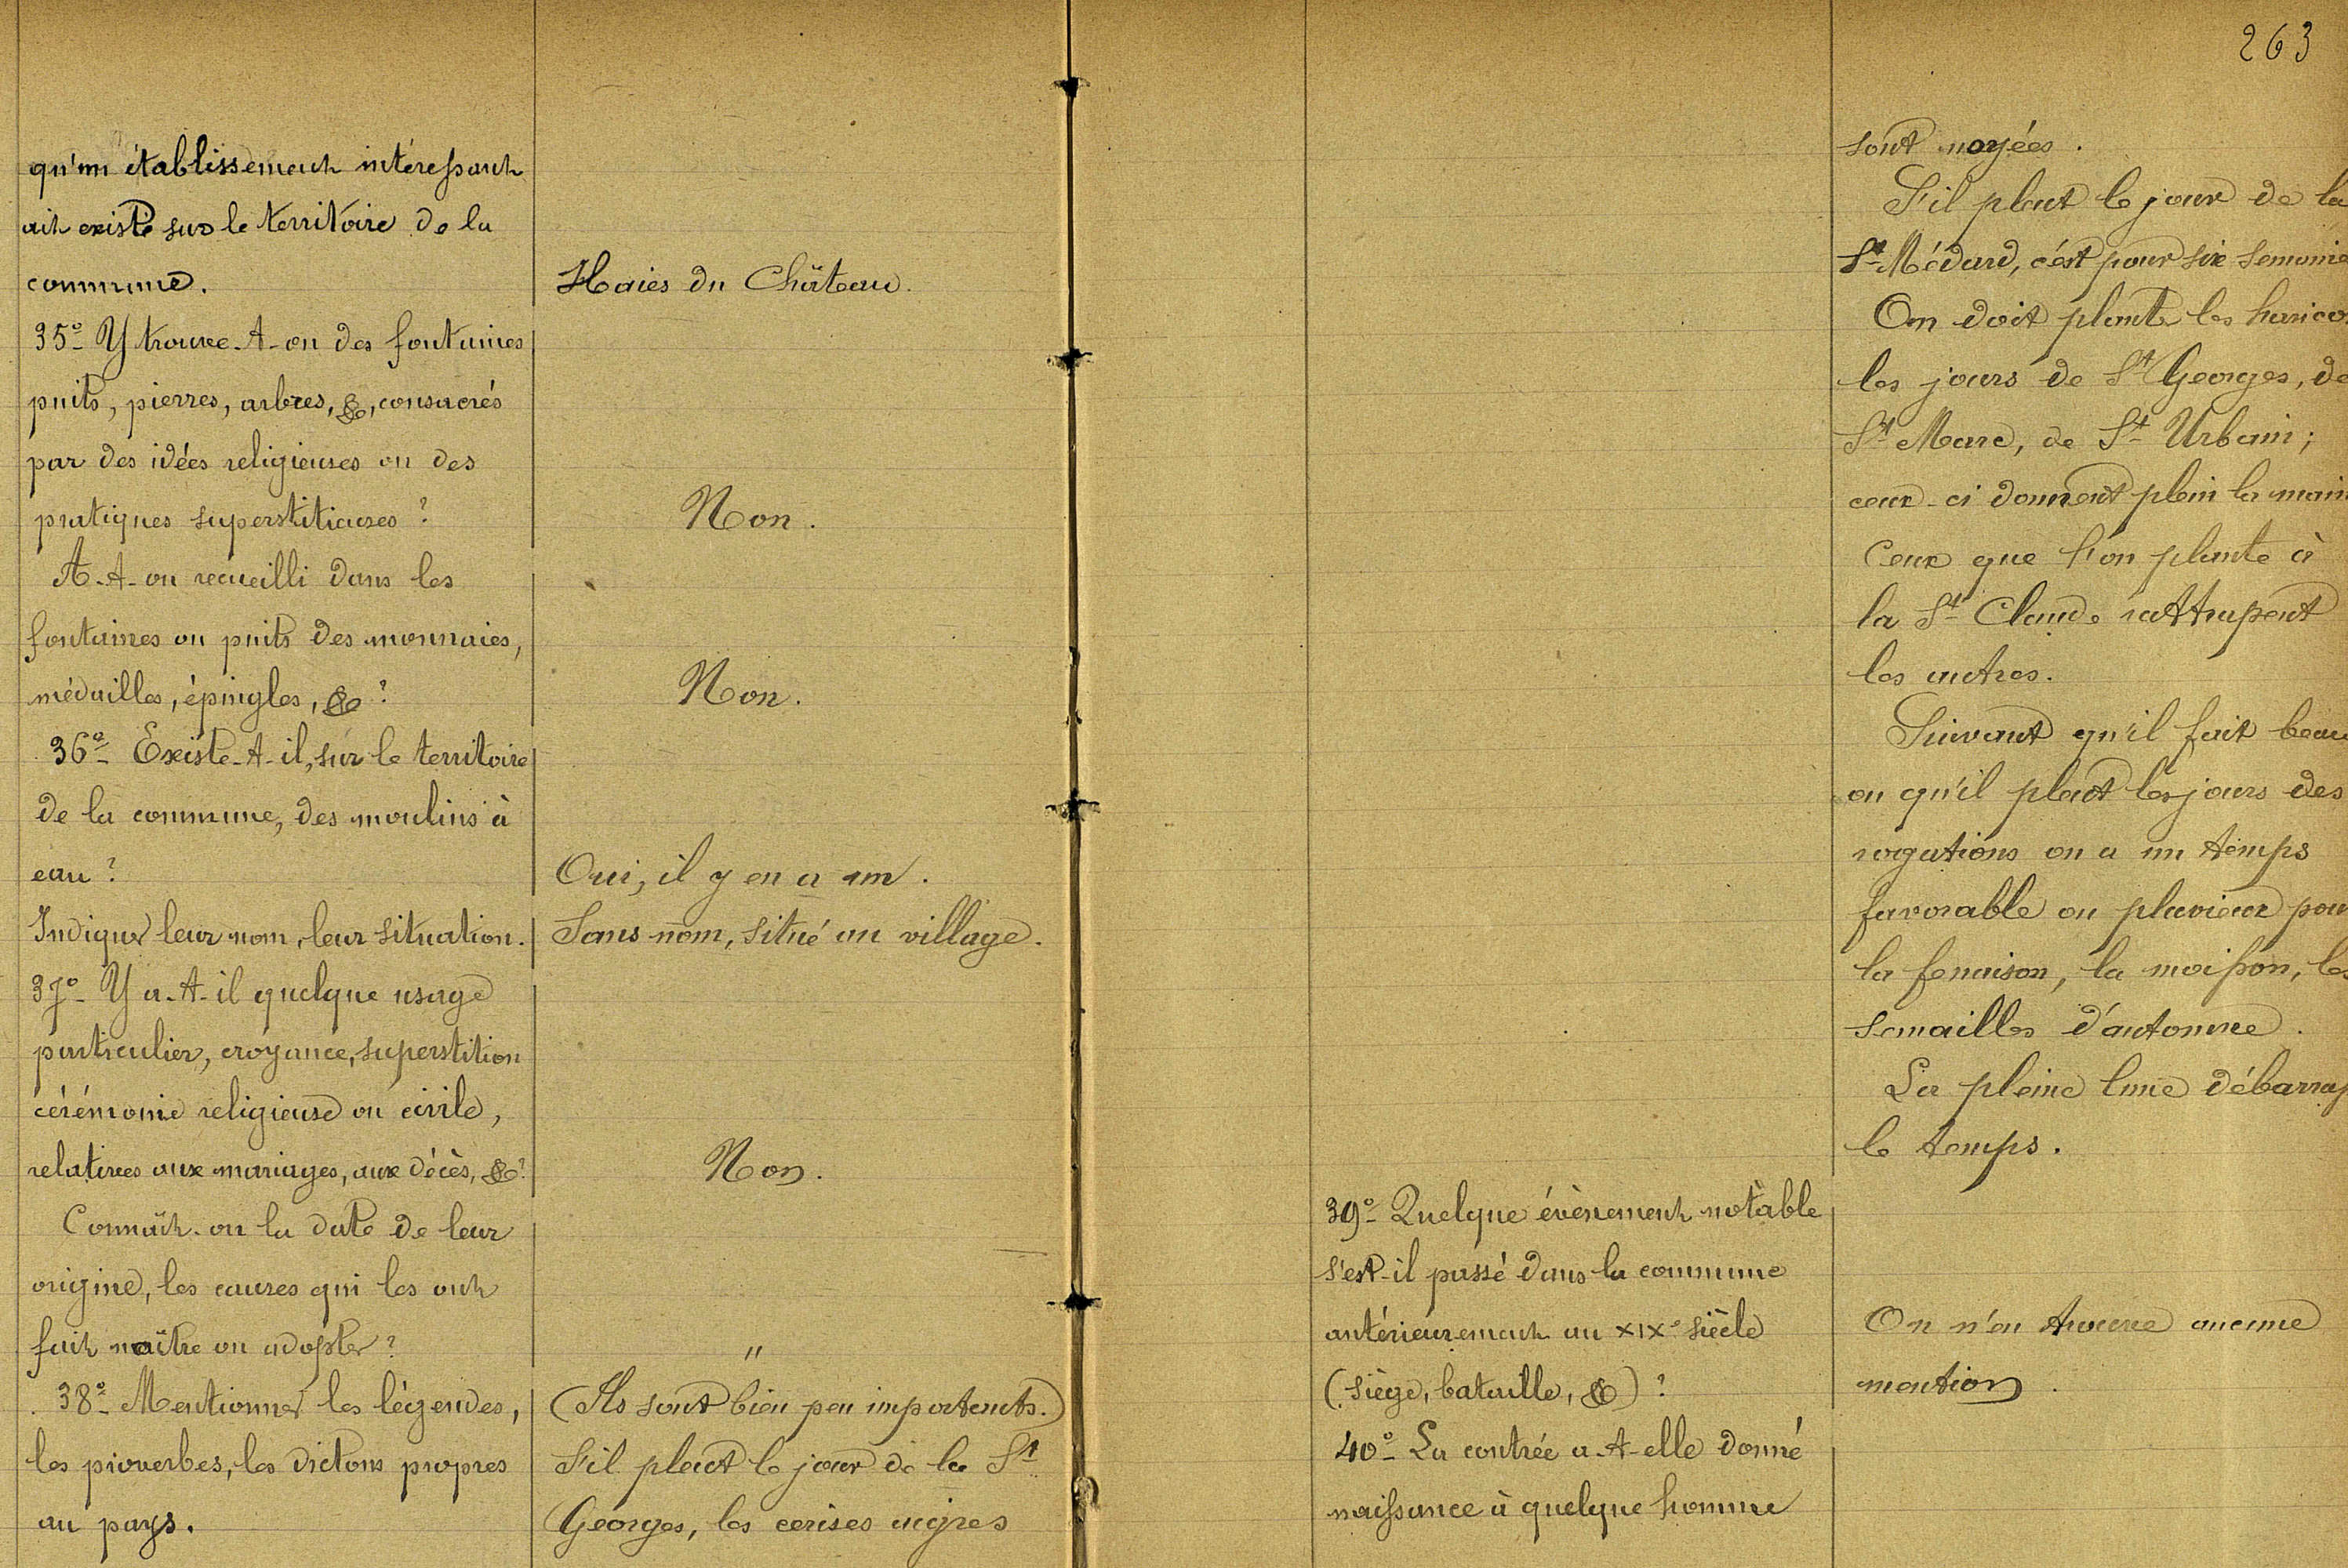 qu'un établissement intéressant
ait existé sur le territoire de la
commune.
Haies du Château.
35º- Y trouve-t-on des fontaines
puits, pierres, arbres, &, consacrés
par des idées religieuses ou des
pratiques superstitieuses ?
Non.
A-t-on recueilli dans les
fontaines ou puits des monnaies,
médailles, épingles, & ?
Non.
36º- Existe-t-il, sur le territoire
de la commune, des moulins à
eau ?
Oui, il y en a un.
Indiquer leur nom, leur situation.
Sans nom, situé au village.
37º- Y a-t-il quelque usage
particulier, croyance, superstition
cérémonie religieuse ou civile,
relatives aux mariages, aux décès, & ?
Non.
Connaît-on la date de leur
origine, les causes qui les ont
fait naître ou adopter ?
"
38º- Mentionner les légendes,
les proverbes, les dictons propres
au pays.
(Ils sont bien peu importants.)
S'il pleut le jour de la St
Georges, les cerises aigres
263
sont noyées.
S'il pleut le jour de la
St Médard, c'est pour six semaine
On doit planter les harico
les jours de St Georges, de
St Marc, de St Urbain ;
ceux-ci donnent plein la main
Ceux que l'on plante à
la St Claude rattrapent
les autres.
Suivant qu'il fait beau
ou qu'il pleut les jours des
rogations on a un temps
favorable ou pluvieux pour
la fenaison, la moisson, les
semailles d'automne.
La pleine lune débarras
le temps.
39º- Quelque évènement notable
s'est-il passé dans la commune
antérieurement au XIXe siècle
(siège, bataille, &) ?
On n'en trouve aucune
mention.
40º- La contrée a-t-elle donné
naissance à quelque homme